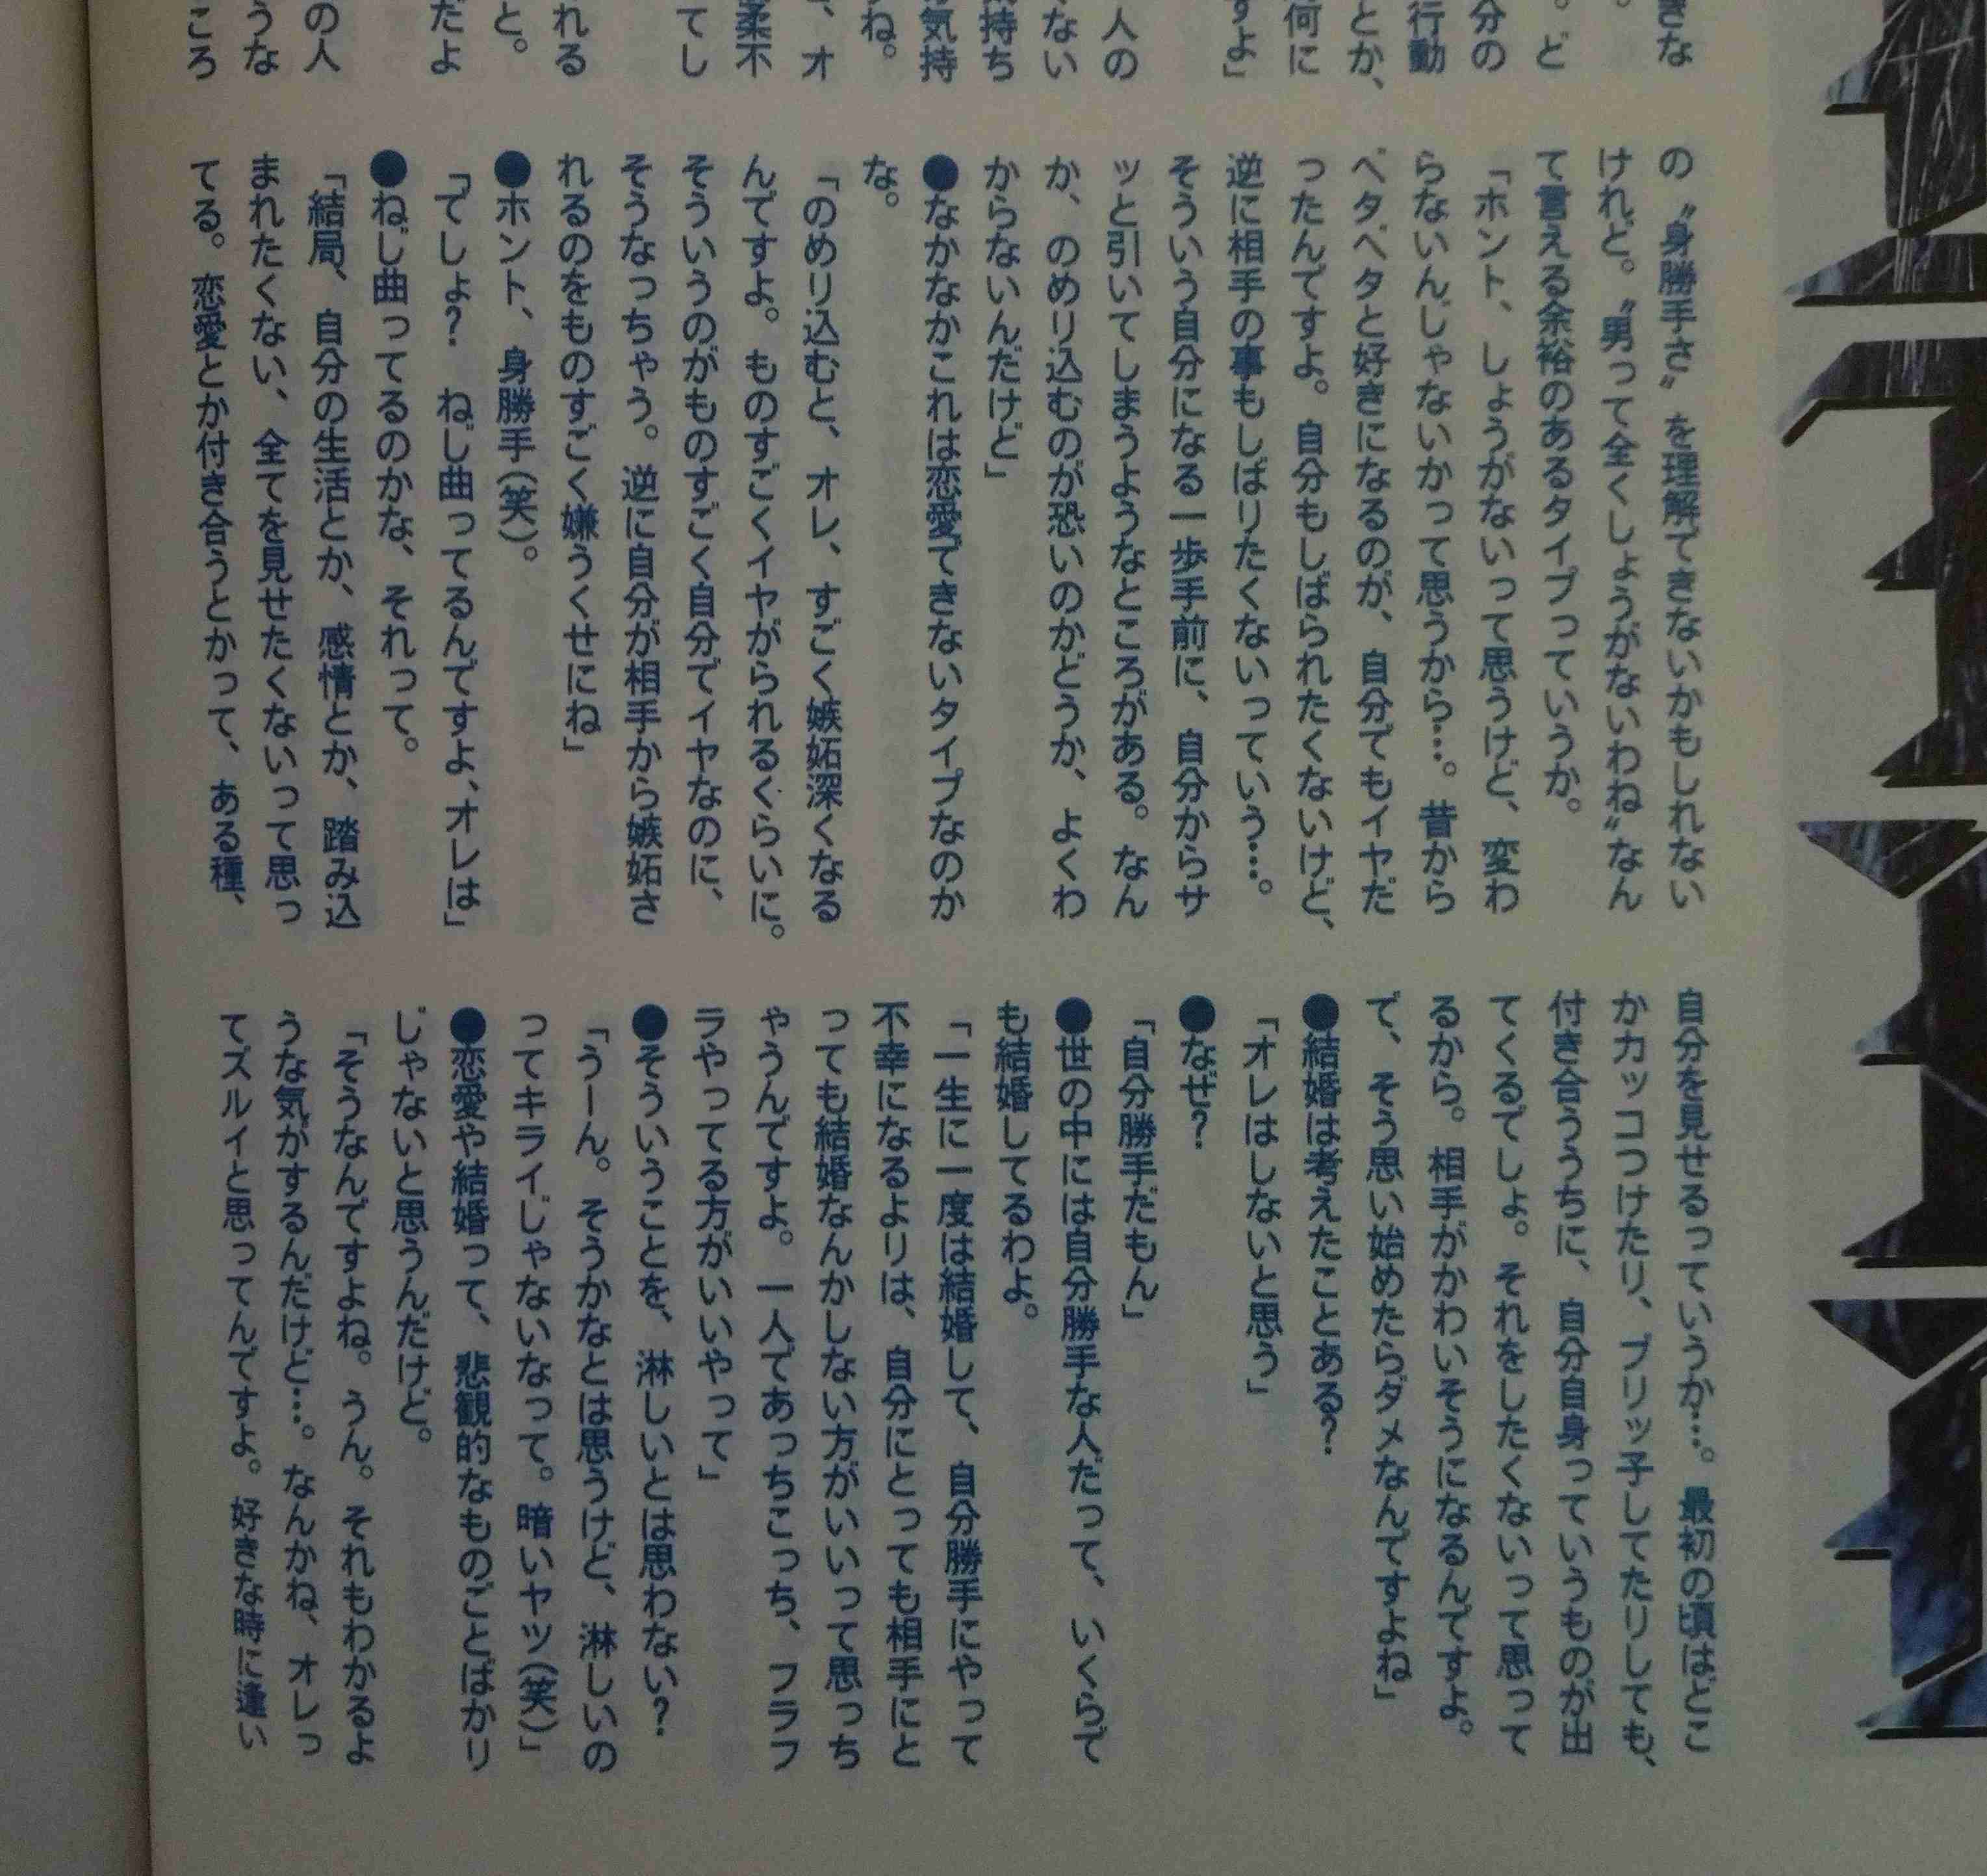 きな
。
。ど
分の
行動
とか、
何に
すよ」
人の
ない
持ち
気持
ね。
、オ
柔不
てし
れる
と。
だよ
の人
うな
ころ
の〝身勝手さ〟を理解できないかもしれない
けれど。〝男って全くしょうがないわね〟なん
て言える余裕のあるタイプっていうか。
「ホント、しょうがないって思うけど、変わ
らないんじゃないかって思うから…。昔から
ベタベタと好きになるのが、自分でもイヤだ
ったんですよ。自分もしばられたくないけど、
逆に相手の事もしばりたくないっていう…。
そういう自分になる一歩手前に、自分からサ
ッと引いてしまうようなところがある。なん
か、のめり込むのが恐いのかどうか、よくわ
からないんだけど」
●なかなかこれは恋愛できないタイプなのか
な。
「のめり込むと、オレ、すごく嫉妬深くなる
んですよ。ものすごくイヤがられるくらいに。
そういうのがものすごく自分でイヤなのに、
そうなっちゃう。逆に自分が相手から嫉妬さ
れるのをものすごく嫌うくせにね」
●ホント、身勝手(笑)。
「でしょ?　ねじ曲ってるんですよ、オレは」
●ねじ曲ってるのかな、それって。
「結局、自分の生活とか、感情とか、踏み込
まれたくない、全てを見せたくないって思っ
てる。恋愛とか付き合うとかって、ある種、
自分を見せるっていうか…。最初の頃はどこ
かカッコつけたり、ブリッ子してたりしても、
付き合ううちに、自分自身っていうものが出
てくるでしょ。それをしたくないって思って
るから。相手がかわいそうになるんですよ。
で、そう思い始めたらダメなんですよね」
●結婚は考えたことある?
「オレはしないと思う」
●なぜ?
「自分勝手だもん」
●世の中には自分勝手な人だって、いくらで
も結婚してるわよ。
「一生に一度は結婚して、自分勝手にやって
不幸になるよりは、自分にとっても相手にと
っても結婚なんかしない方がいいって思っち
ゃうんですよ。一人であっちこっち、フラフ
ラやってる方がいいやって」
●そういうことを、淋しいとは思わない?
「うーん。そうかなとは思うけど、淋しいの
ってキライじゃないなって。暗いヤツ(笑)」
●恋愛や結婚って、悲観的なものごとばかり
じゃないと思うんだけど。
「そうなんですよね。うん。それもわかるよ
うな気がするんだけど…。なんかね、オレっ
てズルイと思ってんですよ。好きな時に逢い